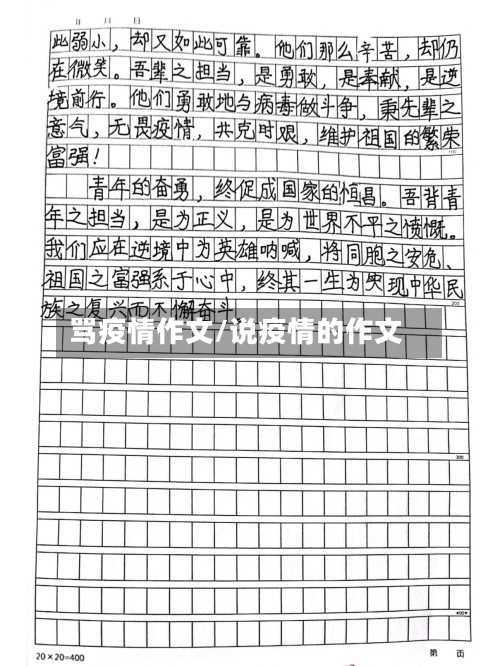 年 月 日
此弱小，却又如此可靠。他们那么辛苦，却仍
在微笑。吾辈之担当，是勇敢，是奉献，是逆
境前行。他们勇敢地与病毒做斗争，秉先辈之
意气，无畏疫情，共克时艰，维护祖国的繁荣
富强！
100
青年的奋勇，终促成国家的恒昌。吾背青
年之担当，是为正义，是为世界不平之愤慨。
我们应在逆境中为英雄呐喊，将同胞之安危、
祖国之富强系于心中，终其一生为实现中华民
200
族之复兴而不懈奋斗
骂疫情作文/说疫情的作文
300
400
20×20=400
第 页